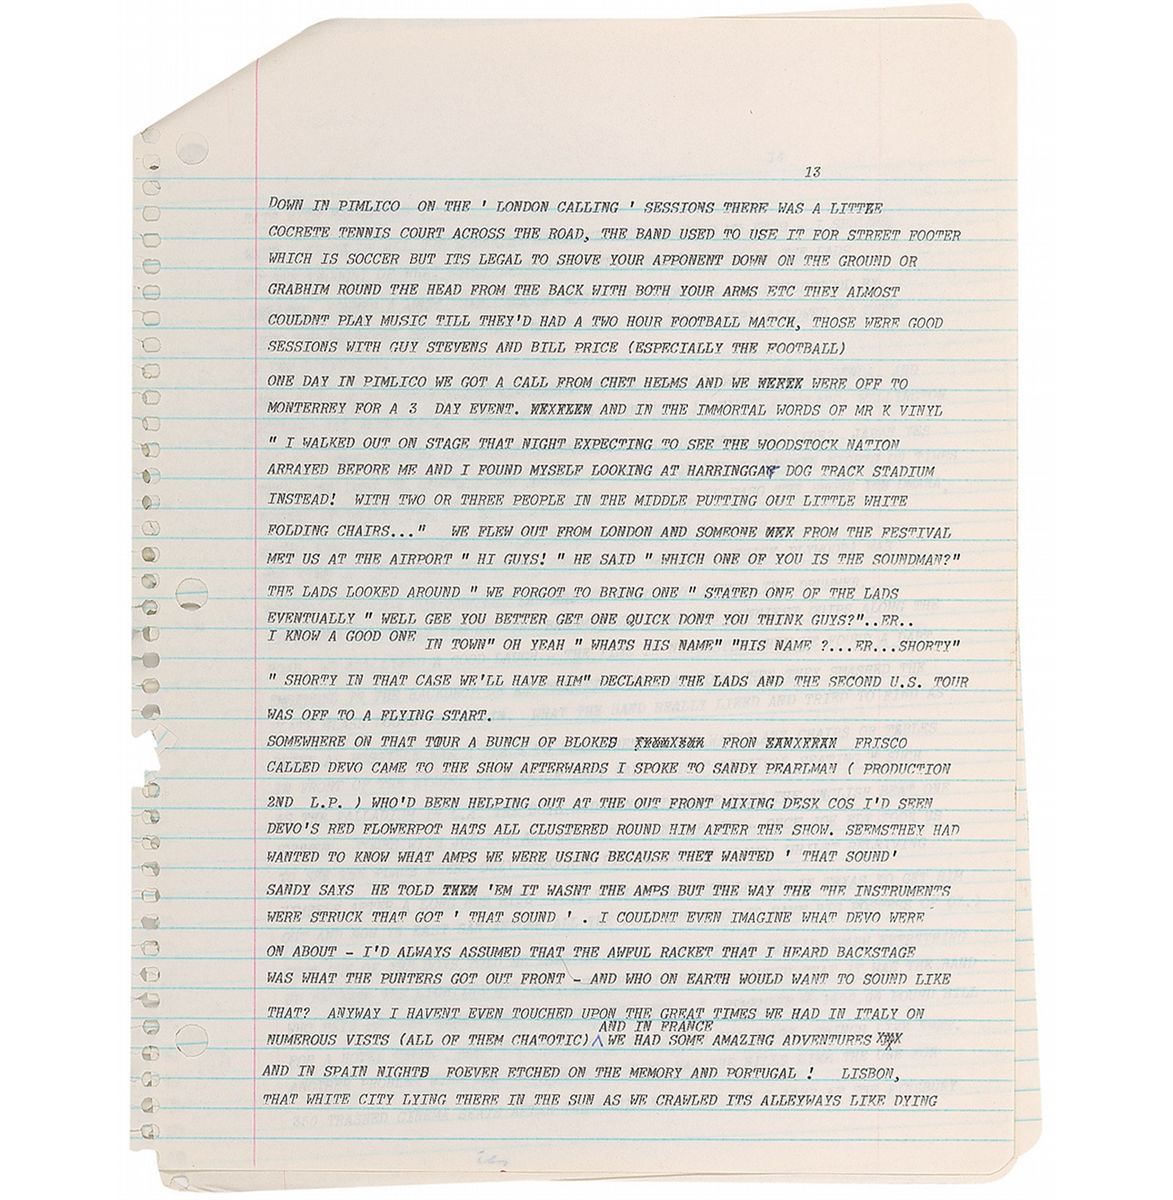 13
DOWN IN PIMLICO ON THE ' LONDON CALLING ' SESSIONS THERE WAS A LITTLE
COCRETE TENNIS COURT ACROSS THE ROAD, THE BAND USED TO USE IT FOR STREET FOOTER
WHICH IS SOCCER BUT ITS LEGAL TO SHOVE YOUR APPONENT DOWN ON THE GROUND OR
GRABHIM ROUND THE HEAD FROM THE BACK WITH BOTH YOUR ARMS ETC THEY ALMOST
COULDNT PLAY MUSIC TILL THEY'D HAD A TWO HOUR FOOTBALL MATCH, THOSE WERE GOOD
SESSIONS WITH GUY STEVENS AND BILL PRICE (ESPECIALLY THE FOOTBALL)
ONE DAY IN PIMLICO WE GOT A CALL FROM CHET HELMS AND WE WERE OFF TO
MONTERREY FOR A 3 DAY EVENT. AND IN THE IMMORTAL WORDS OF MR K VINYL
" I WALKED OUT ON STAGE THAT NIGHT EXPECTING TO SEE THE WOODSTOCK NATION
ARRAYED BEFORE ME AND I FOUND MYSELF LOOKING AT HARRINGGAY DOG TRACK STADIUM
INSTEAD! WITH TWO OR THREE PEOPLE IN THE MIDDLE PUTTING OUT LITTLE WHITE
FOLDING CHAIRS..." WE FLEW OUT FROM LONDON AND SOMEONE FROM THE FESTIVAL
MET US AT THE AIRPORT " HI GUYS! " HE SAID " WHICH ONE OF YOU IS THE SOUNDMAN?"
THE LADS LOOKED AROUND " WE FORGOT TO BRING ONE " STATED ONE OF THE LADS
EVENTUALLY " WELL GEE YOU BETTER GET ONE QUICK DONT YOU THINK GUYS?"..ER..
I KNOW A GOOD ONE IN TOWN" OH YEAH " WHATS HIS NAME" "HIS NAME ?...ER...SHORTY"
" SHORTY IN THAT CASE WE'LL HAVE HIM" DECLARED THE LADS AND THE SECOND U.S. TOUR
WAS OFF TO A FLYING START.
SOMEWHERE ON THAT TOUR A BUNCH OF BLOKES FRON FRISCO
CALLED DEVO CAME TO THE SHOW AFTERWARDS I SPOKE TO SANDY PEARLMAN ( PRODUCTION
2ND L.P. ) WHO'D BEEN HELPING OUT AT THE OUT FRONT MIXING DESK COS I'D SEEN
DEVO'S RED FLOWERPOT HATS ALL CLUSTERED ROUND HIM AFTER THE SHOW. SEEMSTHEY HAD
WANTED TO KNOW WHAT AMPS WE WERE USING BECAUSE THEY WANTED ' THAT SOUND'
SANDY SAYS HE TOLD 'EM IT WASNT THE AMPS BUT THE WAY THE THE INSTRUMENTS
WERE STRUCK THAT GOT ' THAT SOUND ' . I COULDNT EVEN IMAGINE WHAT DEVO WERE
ON ABOUT - I'D ALWAYS ASSUMED THAT THE AWFUL RACKET THAT I HEARD BACKSTAGE
WAS WHAT THE PUNTERS GOT OUT FRONT - AND WHO ON EARTH WOULD WANT TO SOUND LIKE
THAT? ANYWAY I HAVENT EVEN TOUCHED UPON THE GREAT TIMES WE HAD IN ITALY ON
AND IN FRANCE
NUMEROUS VISTS (ALL OF THEM CHATOTIC) WE HAD SOME AMAZING ADVENTURES
AND IN SPAIN NIGHTS FOEVER ETCHED ON THE MEMORY AND PORTUGAL ! LISBON,
THAT WHITE CITY LYING THERE IN THE SUN AS WE CRAWLED ITS ALLEYWAYS LIKE DYING